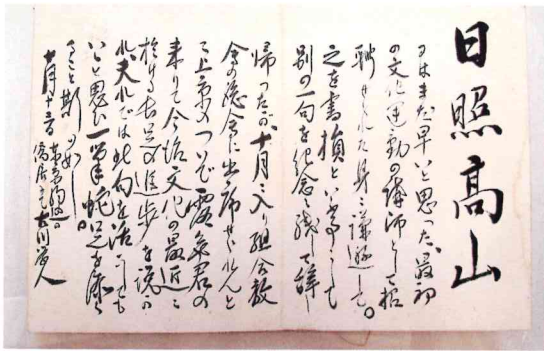 日照高山
のはまだ早いと思った、最初
の文化運動の講師として招
聘せられた身ニ謙遜して。
之を書損といふ事にして
別の一句を紀念ニ残して辞し
帰ったが、十月ニ入り組合教
会の総会に出席せられんと
て上京のついで
来りて今治文化の最近ニ
於ける長足の進歩を説か
れ、夫れでは此句を活かしても
いゝと思ひ一筆蛇足を添
ること斯の如し
十月十三日